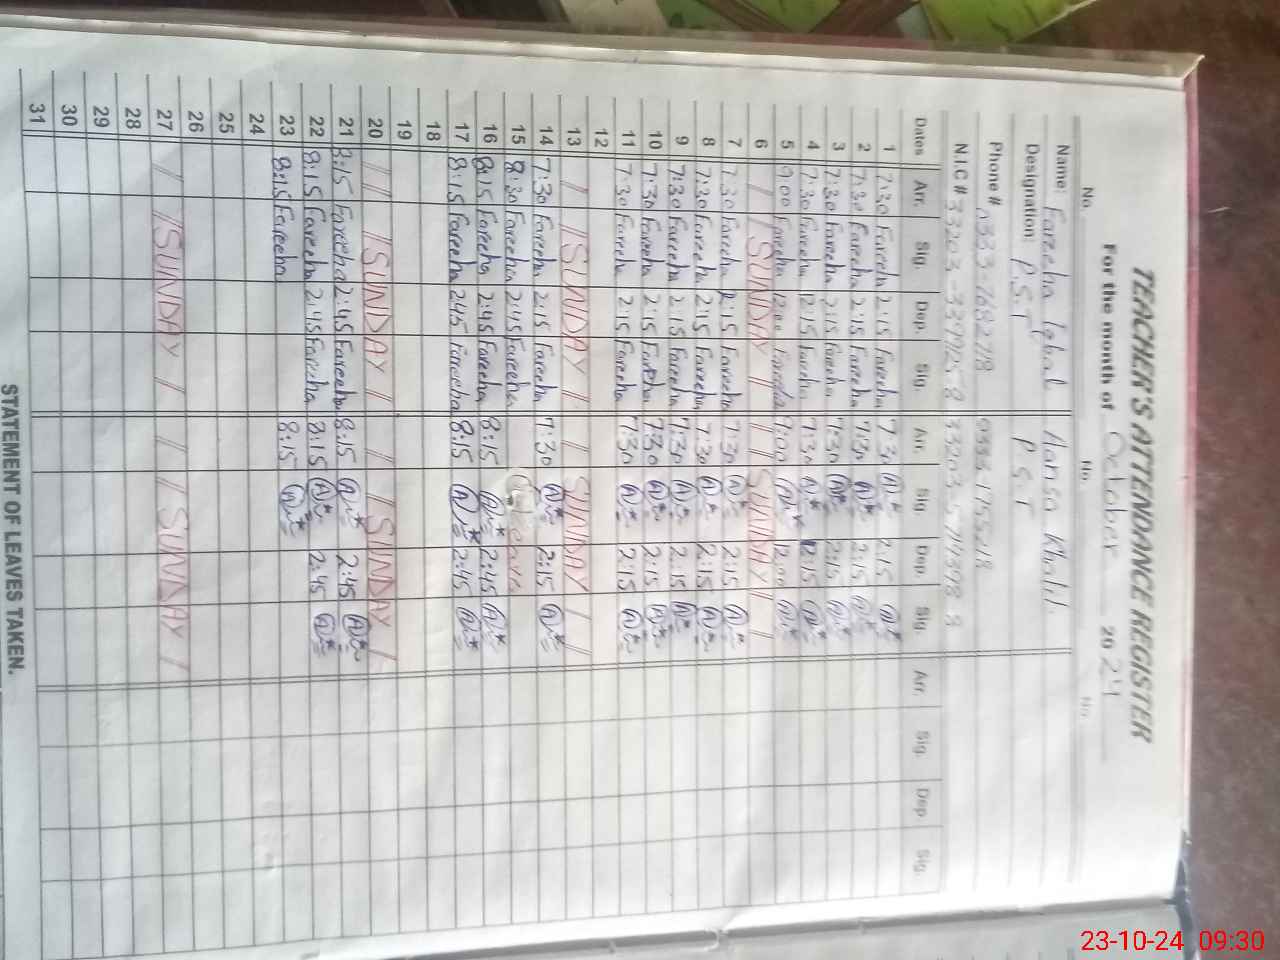 TEACHER'S ATTENDANCE REGISTER
For the month of October 2024
No. No. No.
Name: Fareeha Iqbal Hamsa Khalil
Designation: P.S.T P.S.T
Phone #
N.I.C #
Dates Arr. Sig. Dep. Sig. Arr. Sig. Dep. Sig. Arr. Sig. Dep Sig.
1 7:30 Fareeha 2:15 Fareeha 7:30 2:15
2 7:30 Fareeha 2:15 Fareeha 7:30 2:15
3 7:30 Fareeha 2:15 Fareeha 7:30 2:15
4 7:30 Fareeha 12:15 Fareeha 7:30 12:15
5 9:00 Fareeha 12:00 Fareeha 9:00 12:00
6 SUNDAY SUNDAY
7 7:30 Fareeha 2:15 Fareeha 7:30 2:15
8 7:30 Fareeha 2:15 Fareeha 7:30 2:15
9 7:30 Fareeha 2:15 Fareeha 7:30 2:15
10 7:30 Fareeha 2:15 Fareeha 7:30 2:15
11 7:30 Fareeha 2:15 Fareeha 7:30 2:15
12
13 SUNDAY SUNDAY
14 7:30 Fareeha 2:15 Fareeha 7:30 2:15
15 8:30 Fareeha 2:45 Fareeha
16 8:15 Fareeha 2:45 Fareeha 8:15 2:45
17 8:15 Fareeha 2:45 Fareeha 8:15 2:45
18
19
20 SUNDAY SUNDAY
21 8:15 Fareeha 2:45 Fareeha 8:15 2:45
22 8:15 Fareeha 2:45 Fareeha 8:15 2:45
23 8:15 Fareeha 8:15
24
25
26
27 SUNDAY SUNDAY
28
29
30
31
STATEMENT OF LEAVES TAKEN.
23-10-24 09:30